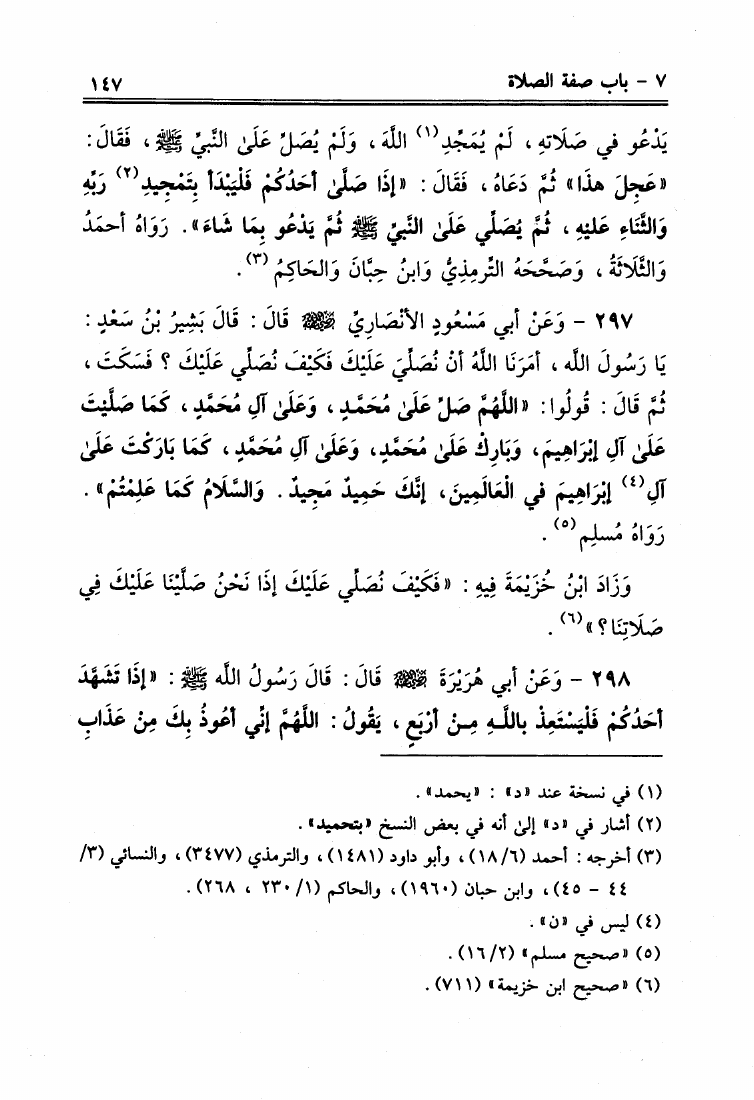 ٧ - باب صفة الصلاة ١٤٧
يَدْعُو في صَلَاتِهِ ، لَمْ يُمَجِّدِ(١) اللَّهَ ، وَلَمْ يُصَلِّ عَلَىٰ النَّبِيِّ ﷺ ، فَقَالَ :
«عَجِلَ هذَا» ثُمَّ دَعَاهُ ، فَقَالَ : «إِذَا صَلَّىٰ أَحَدُكُمْ فَلْيَبْدَأْ بِتَمْجِيدِ(٢) رَبِّهِ
وَالثَّنَاءِ عَلَيْهِ ، ثُمَّ يُصَلِّي عَلَىٰ النَّبِيِّ ﷺ ثُمَّ يَدْعُو بِمَا شَاءَ» . رَوَاهُ أحمَدُ
وَالثَّلَاثَةُ ، وَصَحَّحَهُ التِّرمِذِيُّ وَابنُ حِبَّانَ وَالحَاكِمُ(٣) .
٢٩٧ - وَعَنْ أبي مَسْعُودٍ الأنْصَارِيِّ رضي الله عنه قَالَ : قَالَ بَشِيرُ بْنُ سَعْدٍ :
يَا رَسُولَ اللَّه ، أمَرَنَا اللَّهُ أنْ نُصَلِّيَ عَلَيْكَ فَكَيْفَ نُصَلِّي عَلَيْكَ ؟ فَسَكَتَ ،
ثُمَّ قَالَ : قُولُوا : «اللَّهُمَّ صَلِّ عَلَىٰ مُحَمَّدٍ ، وَعَلَىٰ آلِ مُحَمَّدٍ ، كَمَا صَلَّيْتَ
عَلَىٰ آلِ إبْرَاهِيمَ، وَبَارِكْ عَلَىٰ مُحَمَّدٍ، وَعَلَىٰ آلِ مُحَمَّدٍ ، كَمَا بَارَكْتَ عَلَىٰ
آلِ(٤) إبْرَاهِيمَ في الْعَالَمِينَ، إنَّكَ حَمِيدٌ مَجِيدٌ . وَالسَّلَامُ كَمَا عَلِمْتُمْ» .
رَوَاهُ مُسلِم(٥) .
وَزَادَ ابْنُ خُزَيْمَةَ فِيهِ : «فَكَيْفَ نُصَلِّي عَلَيْكَ إذَا نَحْنُ صَلَّيْنَا عَلَيْكَ فِي
صَلَاتِنَا؟»(٦) .
٢٩٨ - وَعَنْ أبي هُرَيْرَةَ رضي الله عنه قَالَ : قَالَ رَسُولُ اللَّه ﷺ : «إذَا تَشَهَّدَ
أَحَدُكُمْ فَلْيَسْتَعِذْ بِاللَّهِ مِنْ أرْبَعٍ ، يَقُولُ : اللَّهُمَّ إنِّي أعُوذُ بِكَ مِنْ عَذَابِ
(١) في نسخة عند «د» : «يحمد» .
(٢) أشار في «د» إلىٰ أنه في بعض النسخ «بتحميد» .
(٣) أخرجه : أحمد (١٨/٦)، وأبو داود (١٤٨١)، والترمذي (٣٤٧٧)، والنسائي (٣/
٤٤ - ٤٥)، وابن حبان (١٩٦٠)، والحاكم (١/ ٢٣٠ ، ٢٦٨) .
(٤) ليس في «ن» .
(٥) «صحيح مسلم» (١٦/٢) .
(٦) «صحيح ابن خزيمة» (٧١١) .